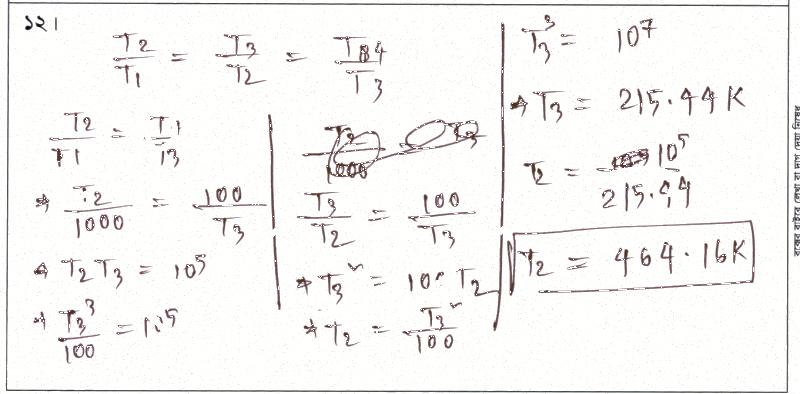 ১২।
T2/T1 = T3/T2 = T84/T3
T2/T1 = T1/T3
⇒ T2/1000 = 100/T3
⇒ T2 T3 = 10^5
⇒ T3^3/100 = 10^5
T3/T2 = 100/T3
⇒ T3^2 = 100 T2
⇒ T2 = T3^2/100
T3^3 = 10^7
⇒ T3 = 215.44 K
T2 = 10^5/215.44
T2 = 464.16 K